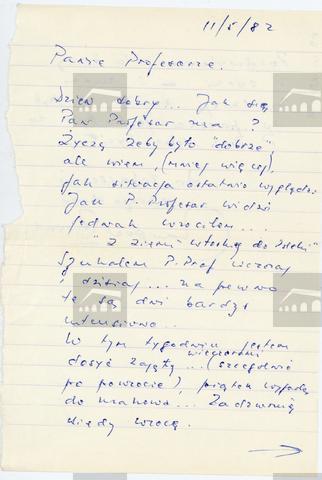 11/5/82
Panie Profesorze.
Dzień dobry... Jak się
Pan Profesor ma ?
Życzę żeby było "dobrze",
ale wiem, (mniej więcej),
jak situacja ostatnio wygląda.
Jak P. Profesor widzi
jednak wrociłem...
"Z ziemi włoskiej do Polski"
Szukałem P. Prof wczoraj
i dzisiaj... na pewno
te są dni bardzo
intensiwne..
W tym tygodniu jestem
dosyć zajęty wieczorami ... (szczególnie
po powrocie), piątek
do Krakowa... Zadzwonię
kiedy wrocę.